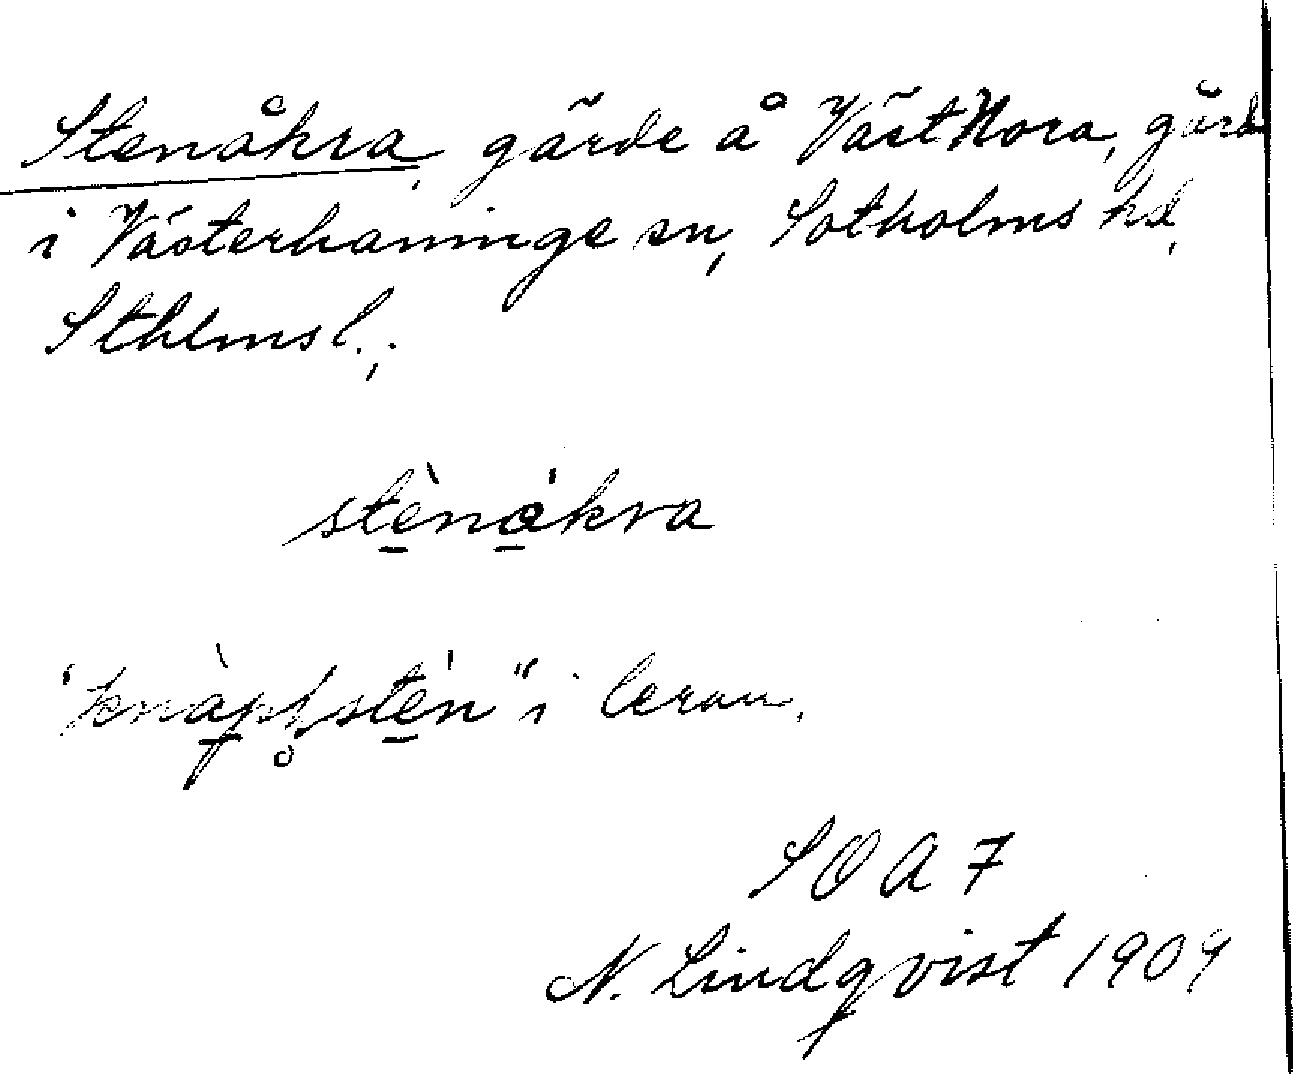 Stenåkra, gärde å Väst Nora, gård
i Västerhaninge sn, Sotholms hd,
Sthlms l.;
stènåkra
"knàpstèn" i leran.
SOA 7
N. Lindqvist 1909